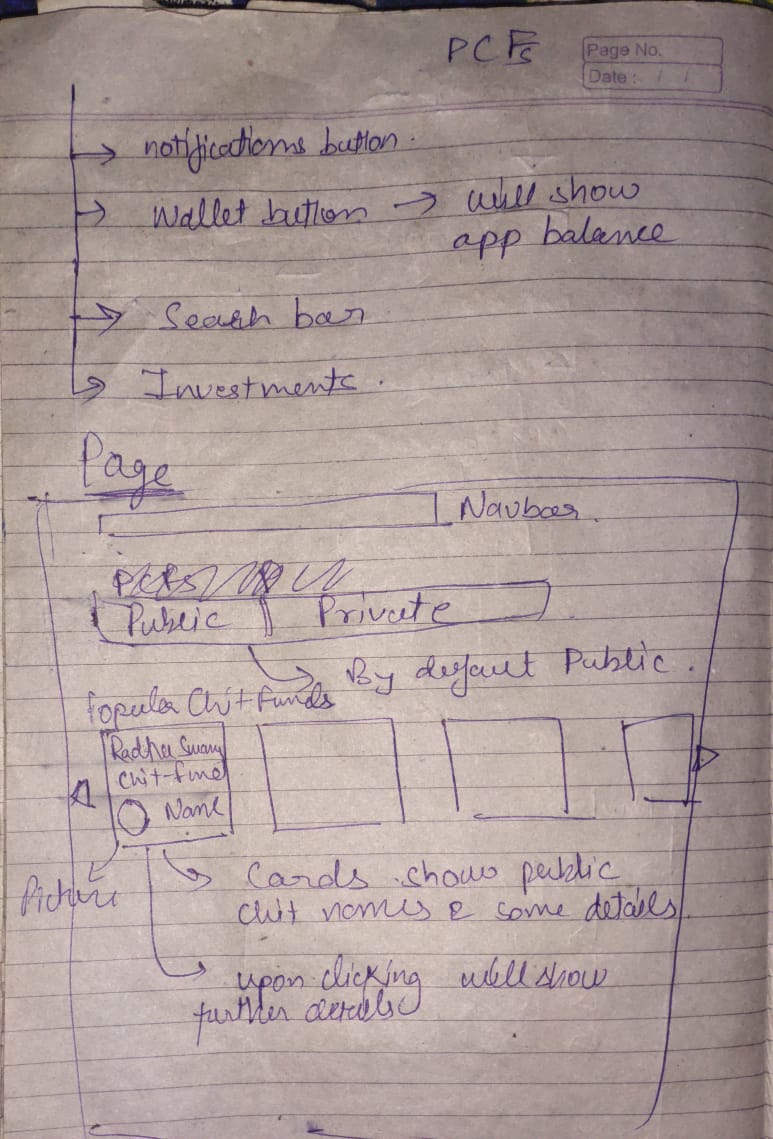 PCFs
Page No.
Date : / /
→ notifications button.
→ Wallet button → will show
app balance
→ Search bar
→ Investments.
Page
Navbar.
Public | Private
By default Public.
Popular Chit Funds
Radha Swamy
Chit-fund
Name
Picture
Cards show public
chit names & some details.
upon clicking will show
further details